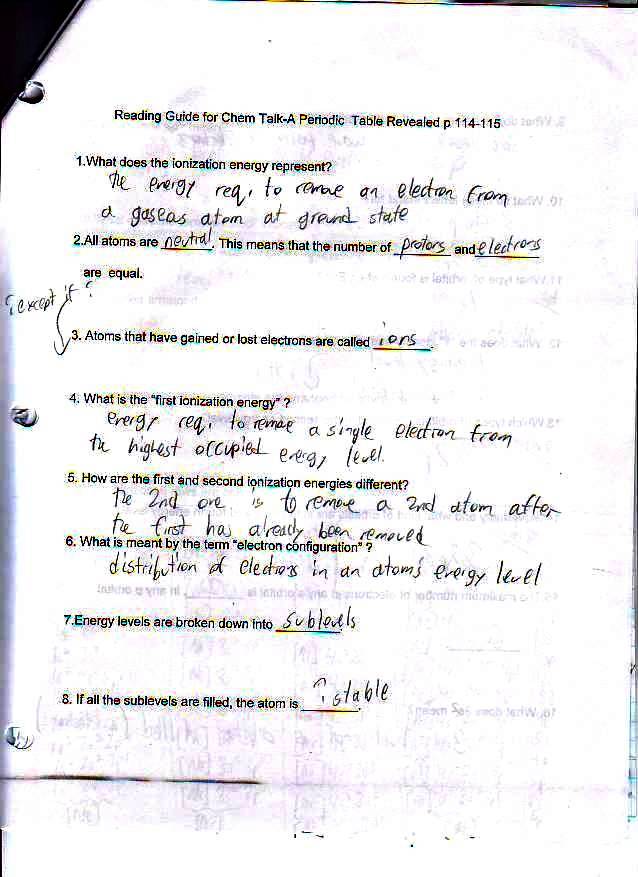 Reading Guide for Chem Talk-A Periodic Table Revealed p 114-115
1.What does the ionization energy represent?
the energy req. to remove an electron from
a gaseas atom at ground state
2.All atoms are neutral. This means that the number of protons and electrons
are equal.
¿except if ?
3. Atoms that have gained or lost electrons are called ions
4. What is the "first ionization energy" ?
energy req. to remove a single electron from
the highest occupied energy level.
5. How are the first and second ionization energies different?
the 2nd one is to remove a 2nd atom after
the first has already been removed
6. What is meant by the term "electron configuration" ?
distribution of electrons in an atom's energy level
7.Energy levels are broken down into sublevels
8. If all the sublevels are filled, the atom is ? stable.